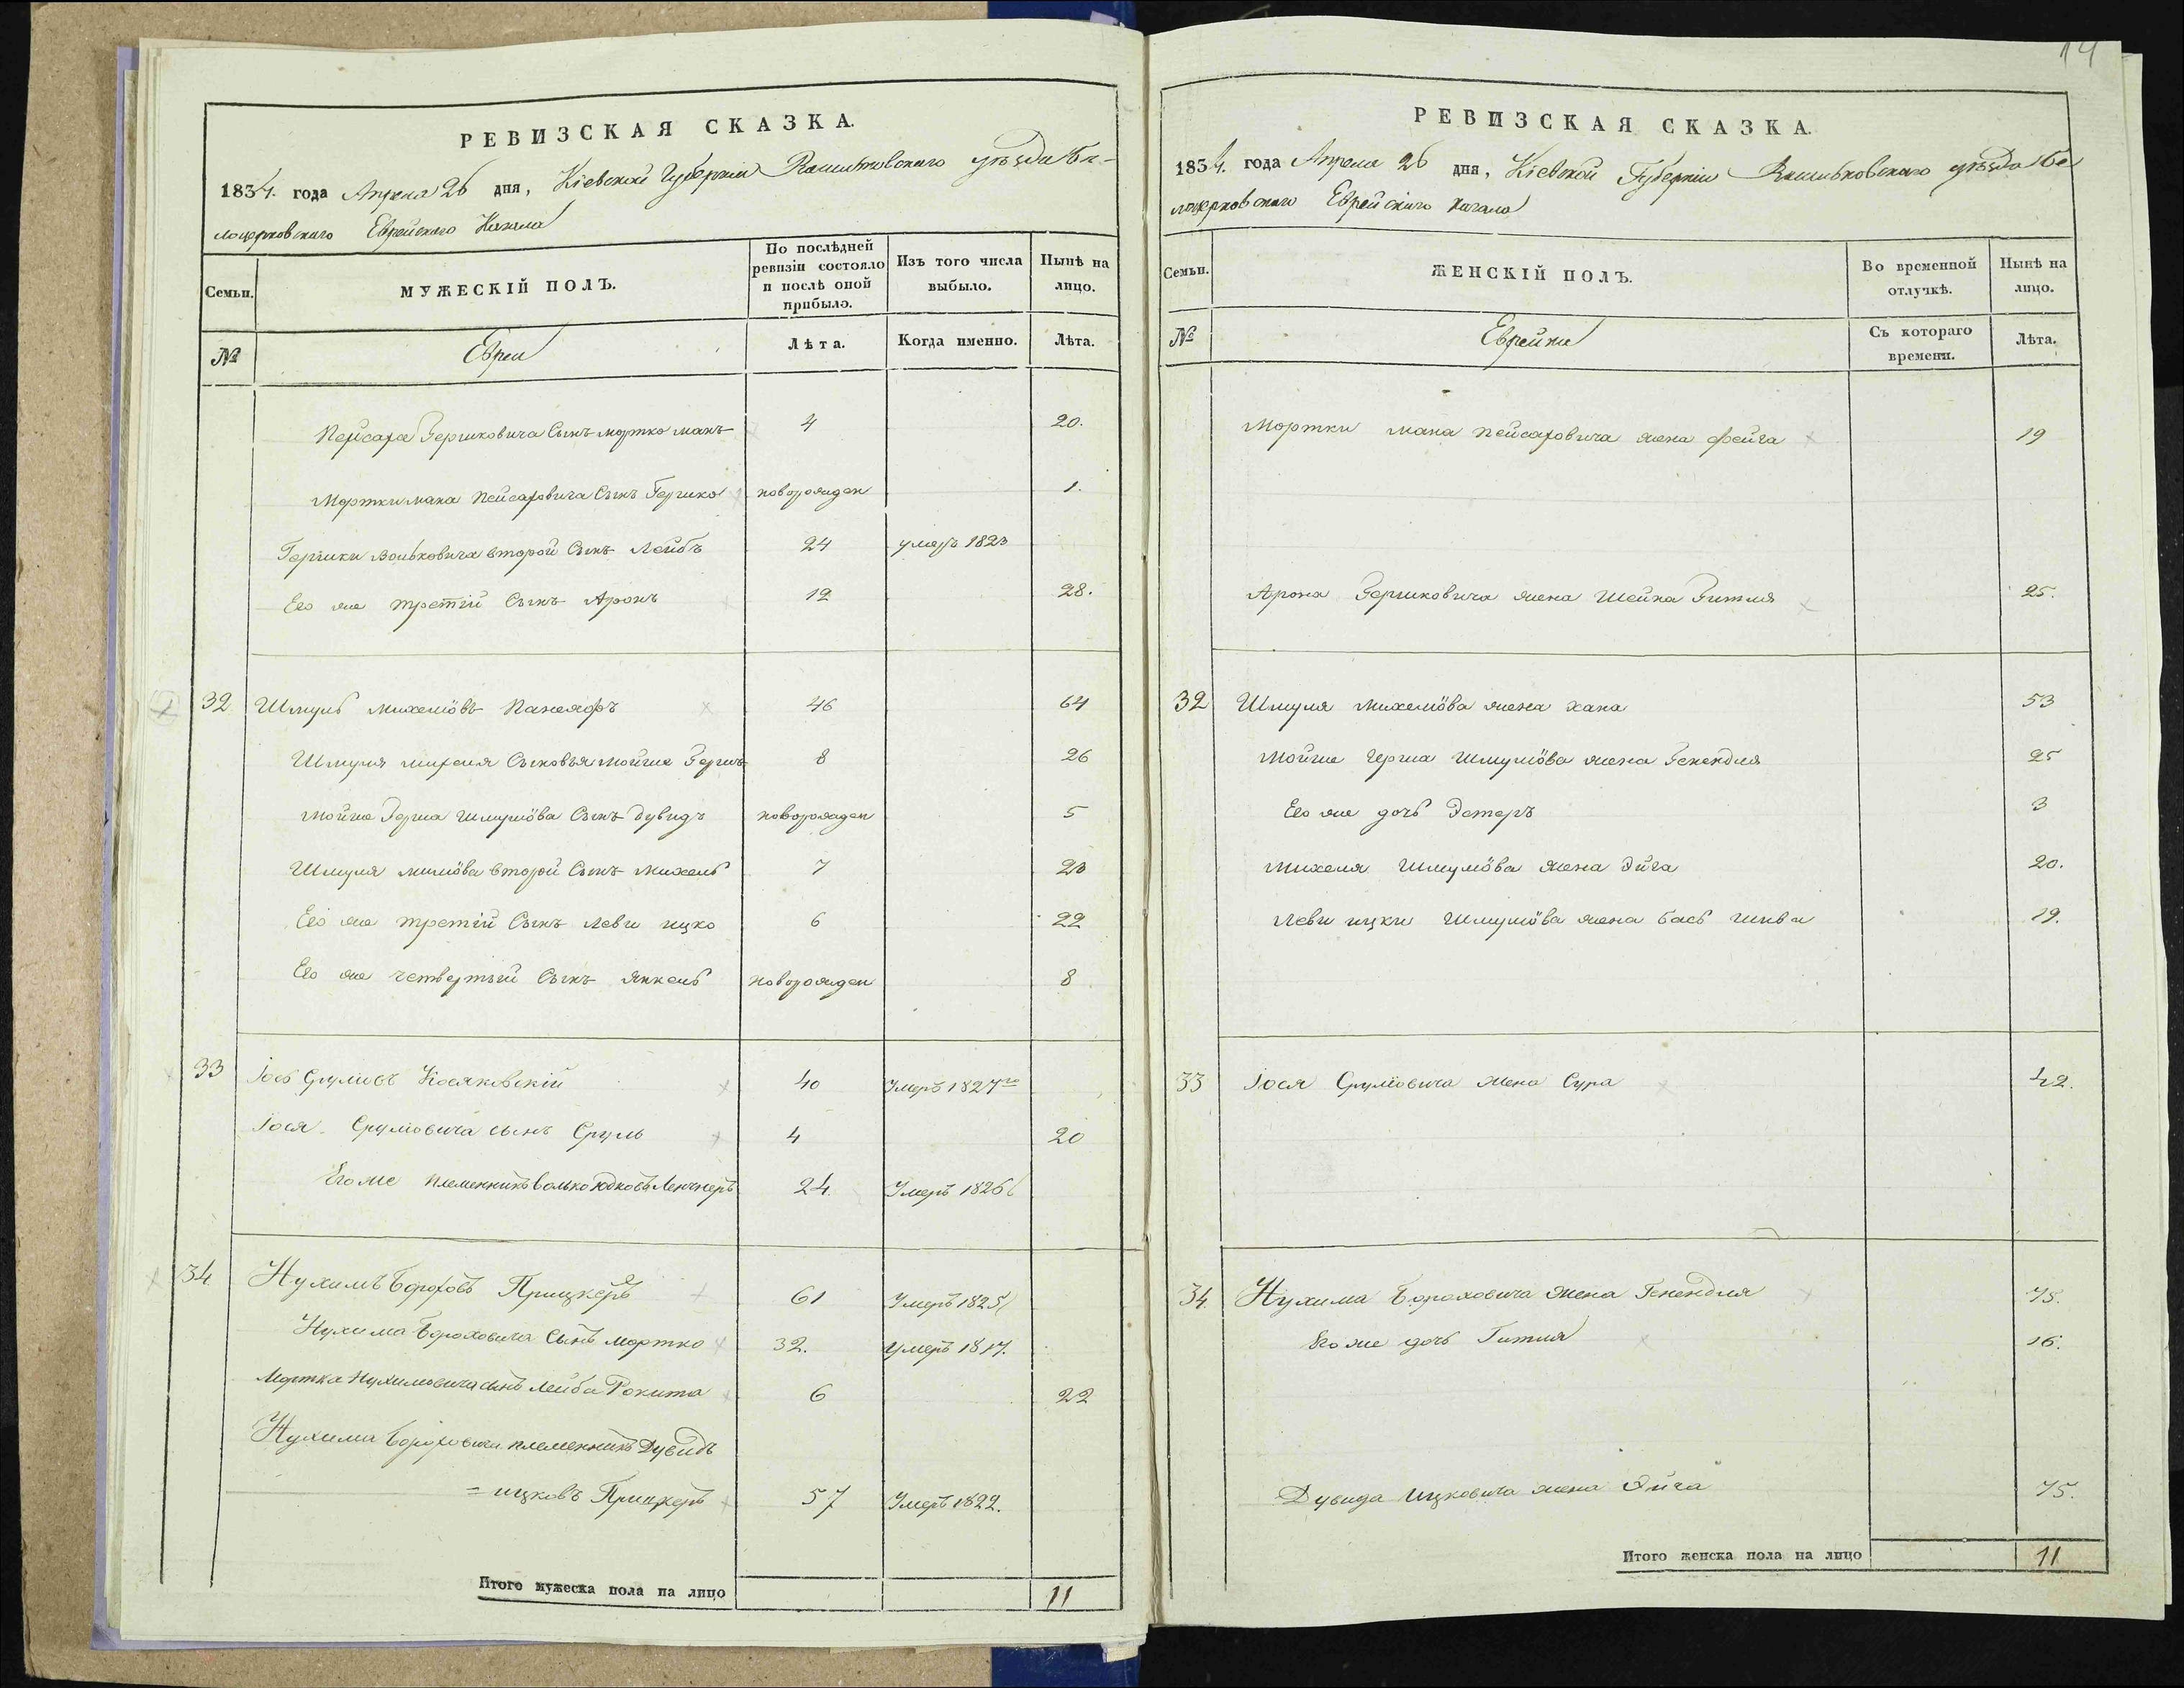 14
РЕВИЗСКАЯ СКАЗКА.
1834. года Апреля 26 дня, Кіевской Губерніи Васильковскаго уѣзда Бѣ-
лоцерковскаго Еврейскаго Кагала
Семьи.
МУЖЕСКІЙ ПОЛЪ.
По послѣдней ревизіи состояло и послѣ оной прибыло.
Изъ того числа выбыло.
Нынѣ на лицо.
№
Евреи
Лѣта.
Когда именно.
Лѣта.
Пейсаха Гершковича Сынъ мортко манъ 4 20.
Мортки мана Пейсаховича Сынъ Гершко новорожден 1.
Гершки Вольковича второй Сынъ Лейбъ 24 умеръ 1823
Его же третій Сынъ Аронъ 12 28.
32 Шмуль михелёвъ 46 64
Шмуля михеля Сыновья мойше Гершъ 8 26
мойше Герша Шмулёва Сынъ дувидъ новорожден 5
Шмуля второй Сынъ михель 7 23
Его же третій Сынъ Леви ицко 6 22
Его же четвертый Сынъ Янкель новорожден 8
33 Іось Срулiовъ Косяковскій 40 Умеръ 1827го
Іося Срулiовича сынъ Сруль 4 20
Его же племенникъ Волько Юдковъ 24. Умеръ 1826
34 Нухимъ Бороховъ Прицкеръ 61 Умеръ 1825
Нухима Бороховича Сынъ мортко 32. Умеръ 1817.
Мортка Нухимовича сынъ Лейба Рокита 6 22
Нухима Бороховича племенникъ Дувидъ
= ицковъ Прицкеръ 57 Умеръ 1822.
Итого мужеска пола на лицо 11
РЕВИЗСКАЯ СКАЗКА.
1834. года Апреля 26 дня, Кіевской Губерніи Васильковскаго уѣзда Бѣ
лоцерковскаго Еврейскаго Кагала
Семьи.
ЖЕНСКІЙ ПОЛЪ.
Во временной отлучкѣ.
Нынѣ на лицо.
№
Еврейки
Съ котораго времени.
Лѣта.
Мортки мана Пейсаховича жена фейга 19
Арона Гершковича жена Шейна Гитля 25.
32 Шмуля михелёва жена хана 53
мойше герша шмулёва жена Генендля 25
Его же дочь Эстеръ 3
михеля шмулёва жена Эйга 20.
Леви ицки Шмулёва жена бась шива 19.
33 Іося Срулiовича жена Сура 42.
34. Нухима Бороховича жена Генендля 75.
Его же дочь Гитля 16.
Дувида Ицковича жена Эйга 75.
Итого женска пола на лицо 11